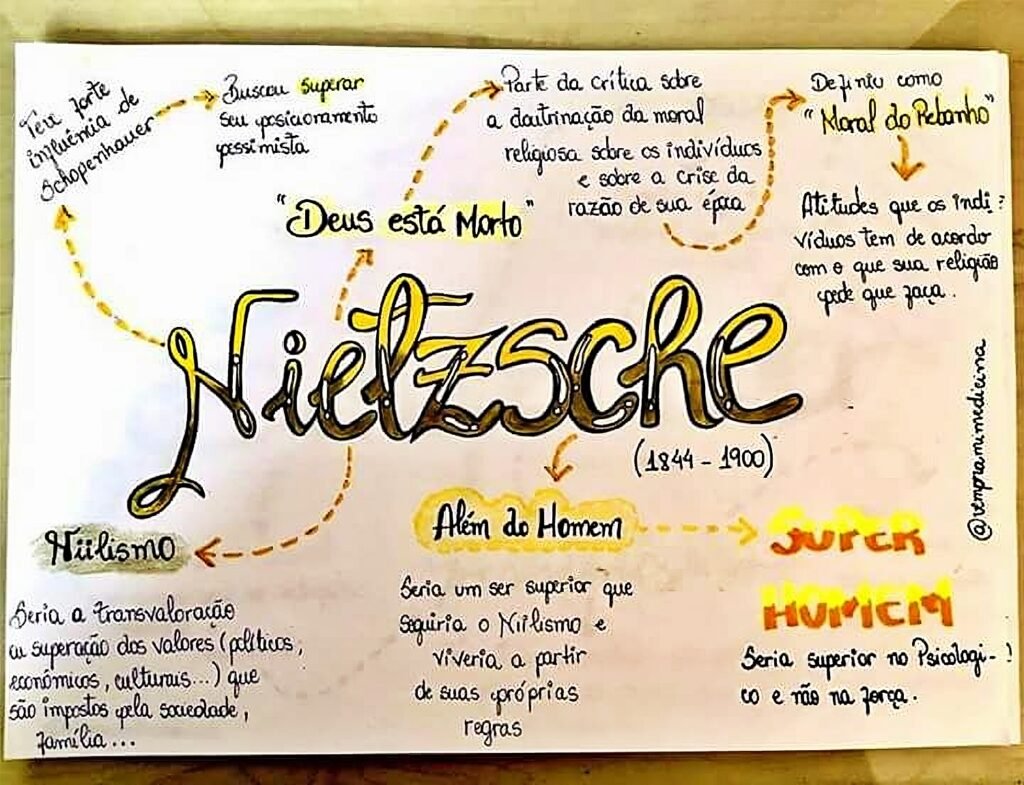 Teu forte
influência de
Schopenhauer
Buscou superar
seu posicionamento
pessimista
"Deus está Morto"
Parte da crítica sobre
a doutrinação da moral
religiosa sobre os indivíduos
e sobre a crise da
razão de sua época
Definiu como
"Moral do Rebanho"
Atitudes que os indi-
víduos tem de acordo
com o que sua religião
pede que faça.
Nietzsche
(1844 - 1900)
@vempramimedicina
Niilismo
Seria a transvaloração
ou superação dos valores (políticos,
econômicos, culturais...) que
são impostos pela sociedade,
família...
Além do Homem
Seria um ser superior que
seguiria o Niilismo e
viveria a partir
de suas próprias
regras
SUPER
HOMEM
Seria superior no Psicologi-
co e não na força.